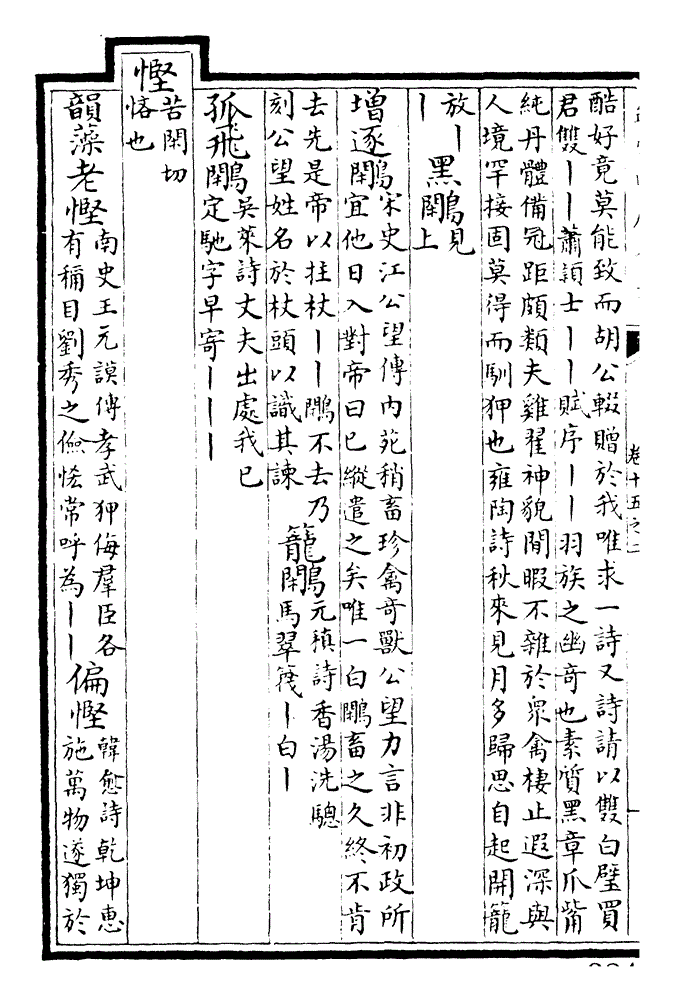 卷十五之一
酷好竟莫能致而胡公輟贈於我唯求一詩又詩請以雙白璧買
君雙丨丨蕭頴士丨丨賦序丨丨羽族之幽奇也素質黑章爪觜
純丹體備冠距頗類夫雞翟神貌閒暇不雜於衆禽棲止遐深與
人境罕接固莫得而馴狎也雍陶詩秋來見月多歸思自起開籠
放丨
丨
黑鷴見
上
增逐鷴宋史江公望傳内苑稍畜珍禽竒獸公望力言非初政所
宜他日入對帝曰已縱遣之矣唯一白鷴畜之久終不肯
去先是帝以拄杖丨丨鷴不去乃
刻公望姓名於杖頭以識其諫
籠鷴元稹詩香湯洗驄
馬翠篾丨白丨
孤飛鷴吳萊詩丈夫出處我已
定馳字早寄丨丨丨
慳苦閑切
悋也
韻藻老慳南史王元謨傳孝武狎侮羣臣各
有稱目劉秀之儉悋常呼為丨丨
偏慳韓愈詩乾坤惠
施萬物遂獨於